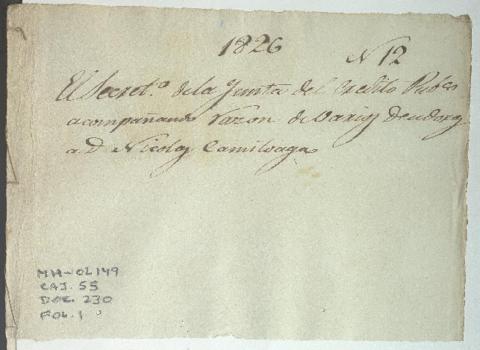 1826
N 12
El Secret.º de la Junta del Credito Pub.co
acompañando razon de varios deudores
a D. Nicolas Camiloaga
MH-OL 149
CAJ. 55
DOC. 230
FOL. 1